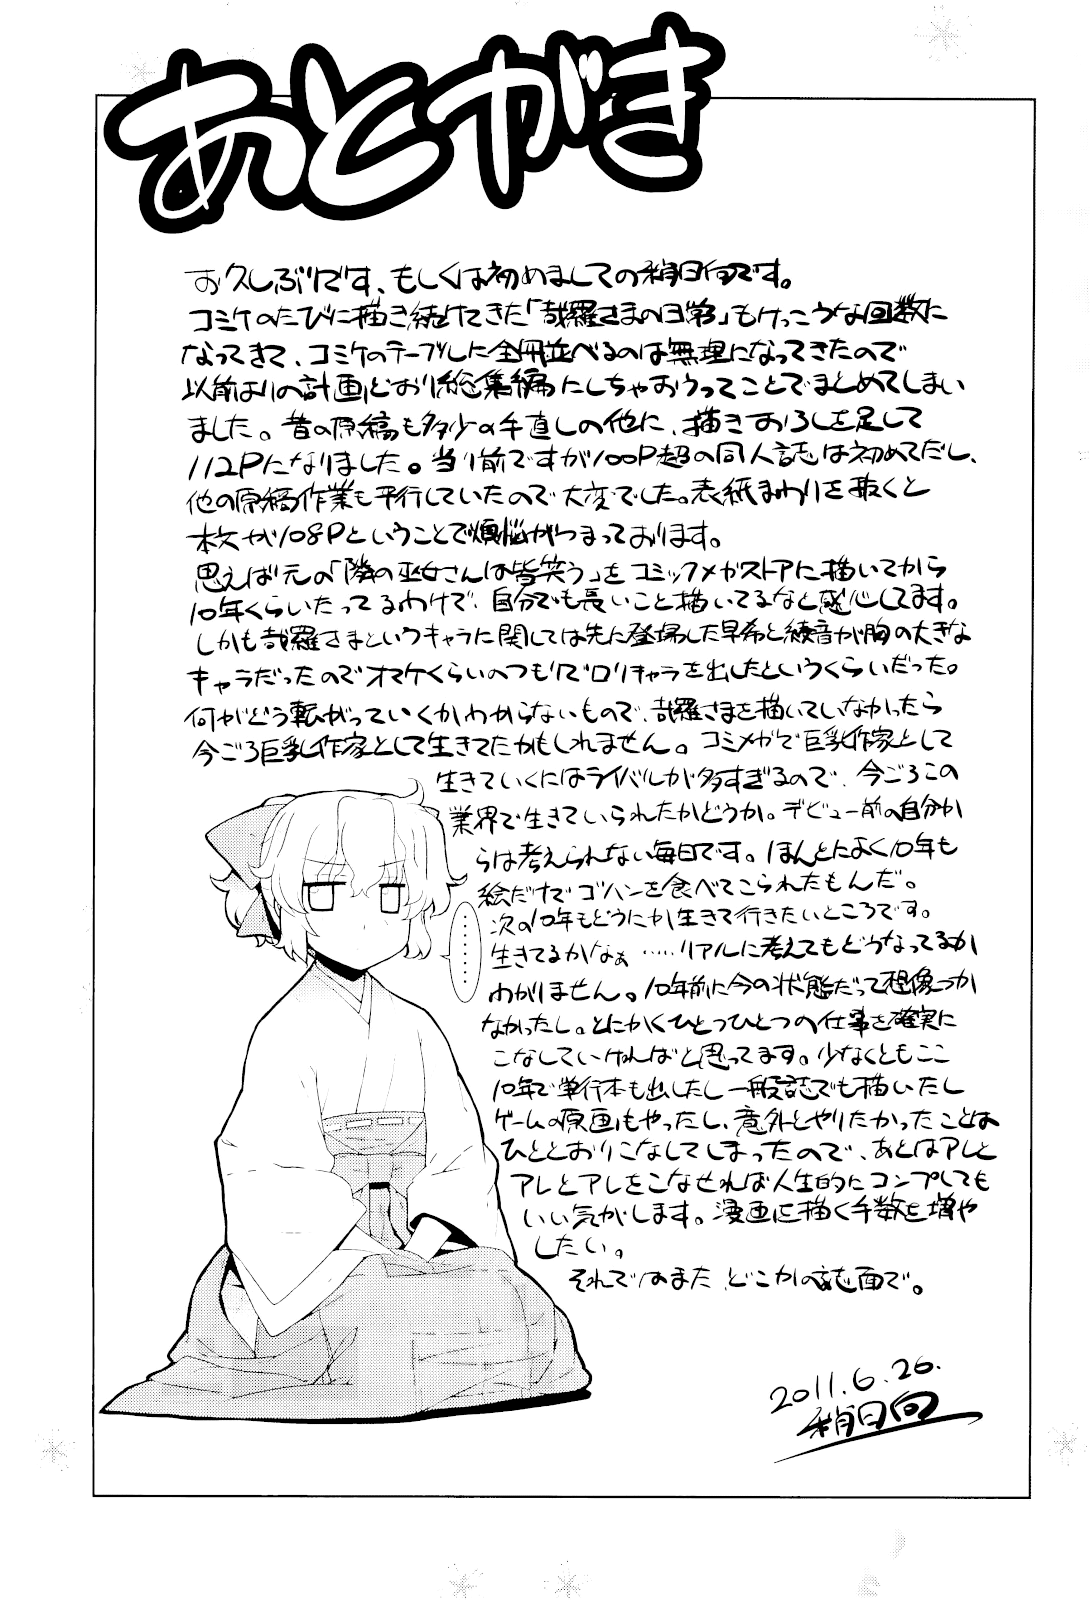 あとがき
お久しぶりです、もしくは初めましての稍日向です。
コミケのたびに描き続けてきた「哉羅さまの日常」もけっこうな回数に
なってきて、コミケのテーブルした全冊並べるのは無理になってきたので
以前よりの計画どおり総集編にしちゃおうってことでまとめてしまい
ました。昔の原稿も多少の手直しの他に、描きおろしを足して
112Pになりました。当り前ですが100P超の同人誌は初めてだし、
他の原稿作業も平行していたので大変でした。表紙まわりを抜くと
本文が108Pということで煩悩がつまっております。
思えば元の「隣の巫女さんは皆笑う」をコミックメガストアに描いてから
10年くらいたってるわけで、自分でも長いこと描いてるなと感心してます。
しかも哉羅さまというキャラに関しては先に登場した早希と綾音が胸の大きな
キャラだったのでオマケくらいのつもりでロリキャラを出したというくらいだった。
何がどう転がっていくかわからないもので、哉羅さまを描いていなかったら
今ごろ巨乳作家として生きてたかもしれません。コミメガで巨乳作家として
生きていくにはライバルが多すぎるので、今ごろこの
業界で生きていられたかどうか。デビュー前の自分か
らは考えられない毎日です。ほんとによく10年も
絵だけでゴハンを食べてこられたもんだ。
次の10年もどうにか生きて行きたいところです。
生きてるかなぁ……リアルに考えてもどうなってるか
わかりません。10年前に今の状態だって想像つか
なかったし。とにかくひとつひとつの仕事を確実に
こなしていければと思ってます。少なくともここ
10年で単行本も出したし一般誌でも描いたし
ゲームの原画もやったし、意外とやりたかったことは
ひととおりこなしてしまったので、あとはアレと
アレとアレをこなせれば人生的にコンプしても
いい気がします。漫画に描く手数を増や
したい。
それではまた、どこかの誌面で。
………
2011.6.26.
稍日向